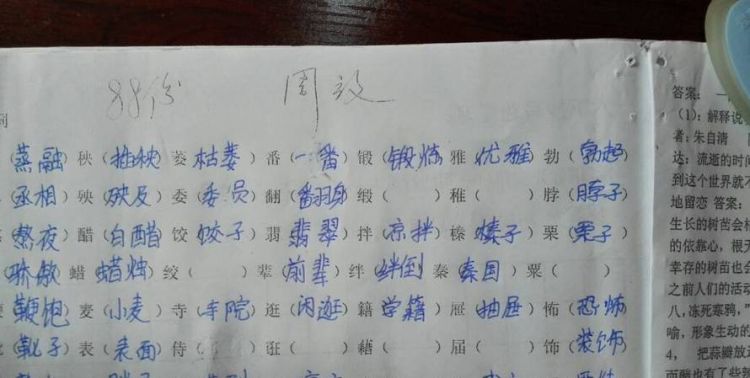 88分 周毅
蒸融）秧（插秧）萎 枯萎）番（一番）锻（锻炼 雅 优雅 勃（勃起）
丞相）殃（殃及）委（委员）翻（翻身 缎（ ）稚（ ）脖（脖子）
熬夜）醋（白醋 饺（饺子）翡 翡翠）拌（凉拌）榛 榛子）栗（栗子）
骄傲 蜡 蜡烛）绞（ ）辈（前辈）绊（绊倒 秦 秦国）粟（ ）
鞭炮 麦（小麦）寺（寺院）逛（闲逛）籍 学籍）屉（抽屉）怖（恐怖）
靴子）表（表面）侍（ ）诳（ ）藉（ ）届（ ）饰（装饰）
答案：
（1）：解释说
者：朱自清
达：流逝的时
到这个世界就不
地留恋 答案：
生长的树苗会
的依靠心，根
幸存的树苗也
之前人们的活动
八，冻死寒鸦，
喻，形象生动的
4， 把蒜瓣放
而醋也有了些辣